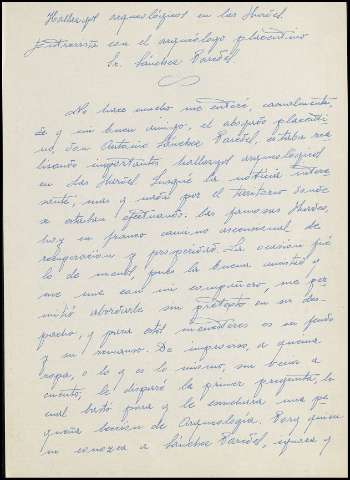 Hallazgos arqueológicos en las Hurdes.
Entrevista con el arqueólogo placentino
Sr. Sánchez Paredes
No hace mucho me enteré, casualmente,
de y mi buen amigo, el abogado placenti
no, don Antonio Sánchez Paredes, estaba rea
lizando importantes hallazgos arqueológicos
en las Hurdes. Juzgué la noticia intere
sante, más y cuando por el territorio donde
se estaban efectuando. Las famosas Hurdes,
hoy en franco camino ascensional de
recuperación y prosperidad. La ocasión
de pues la buena amistad
me une con mi me per
mitió abordarle sin pretexto en su des
pacho, y para estos menesteres es su feudo
y su remanso. De improviso, a quema
ropa, o lo y es lo mismo, sin venir a
cuento, le disparé la primer pregunta, la
cual bastó para y le escuchara una pe
queña lección de Arqueología. Pero quien
no conozca a Sánchez Paredes, ignora y